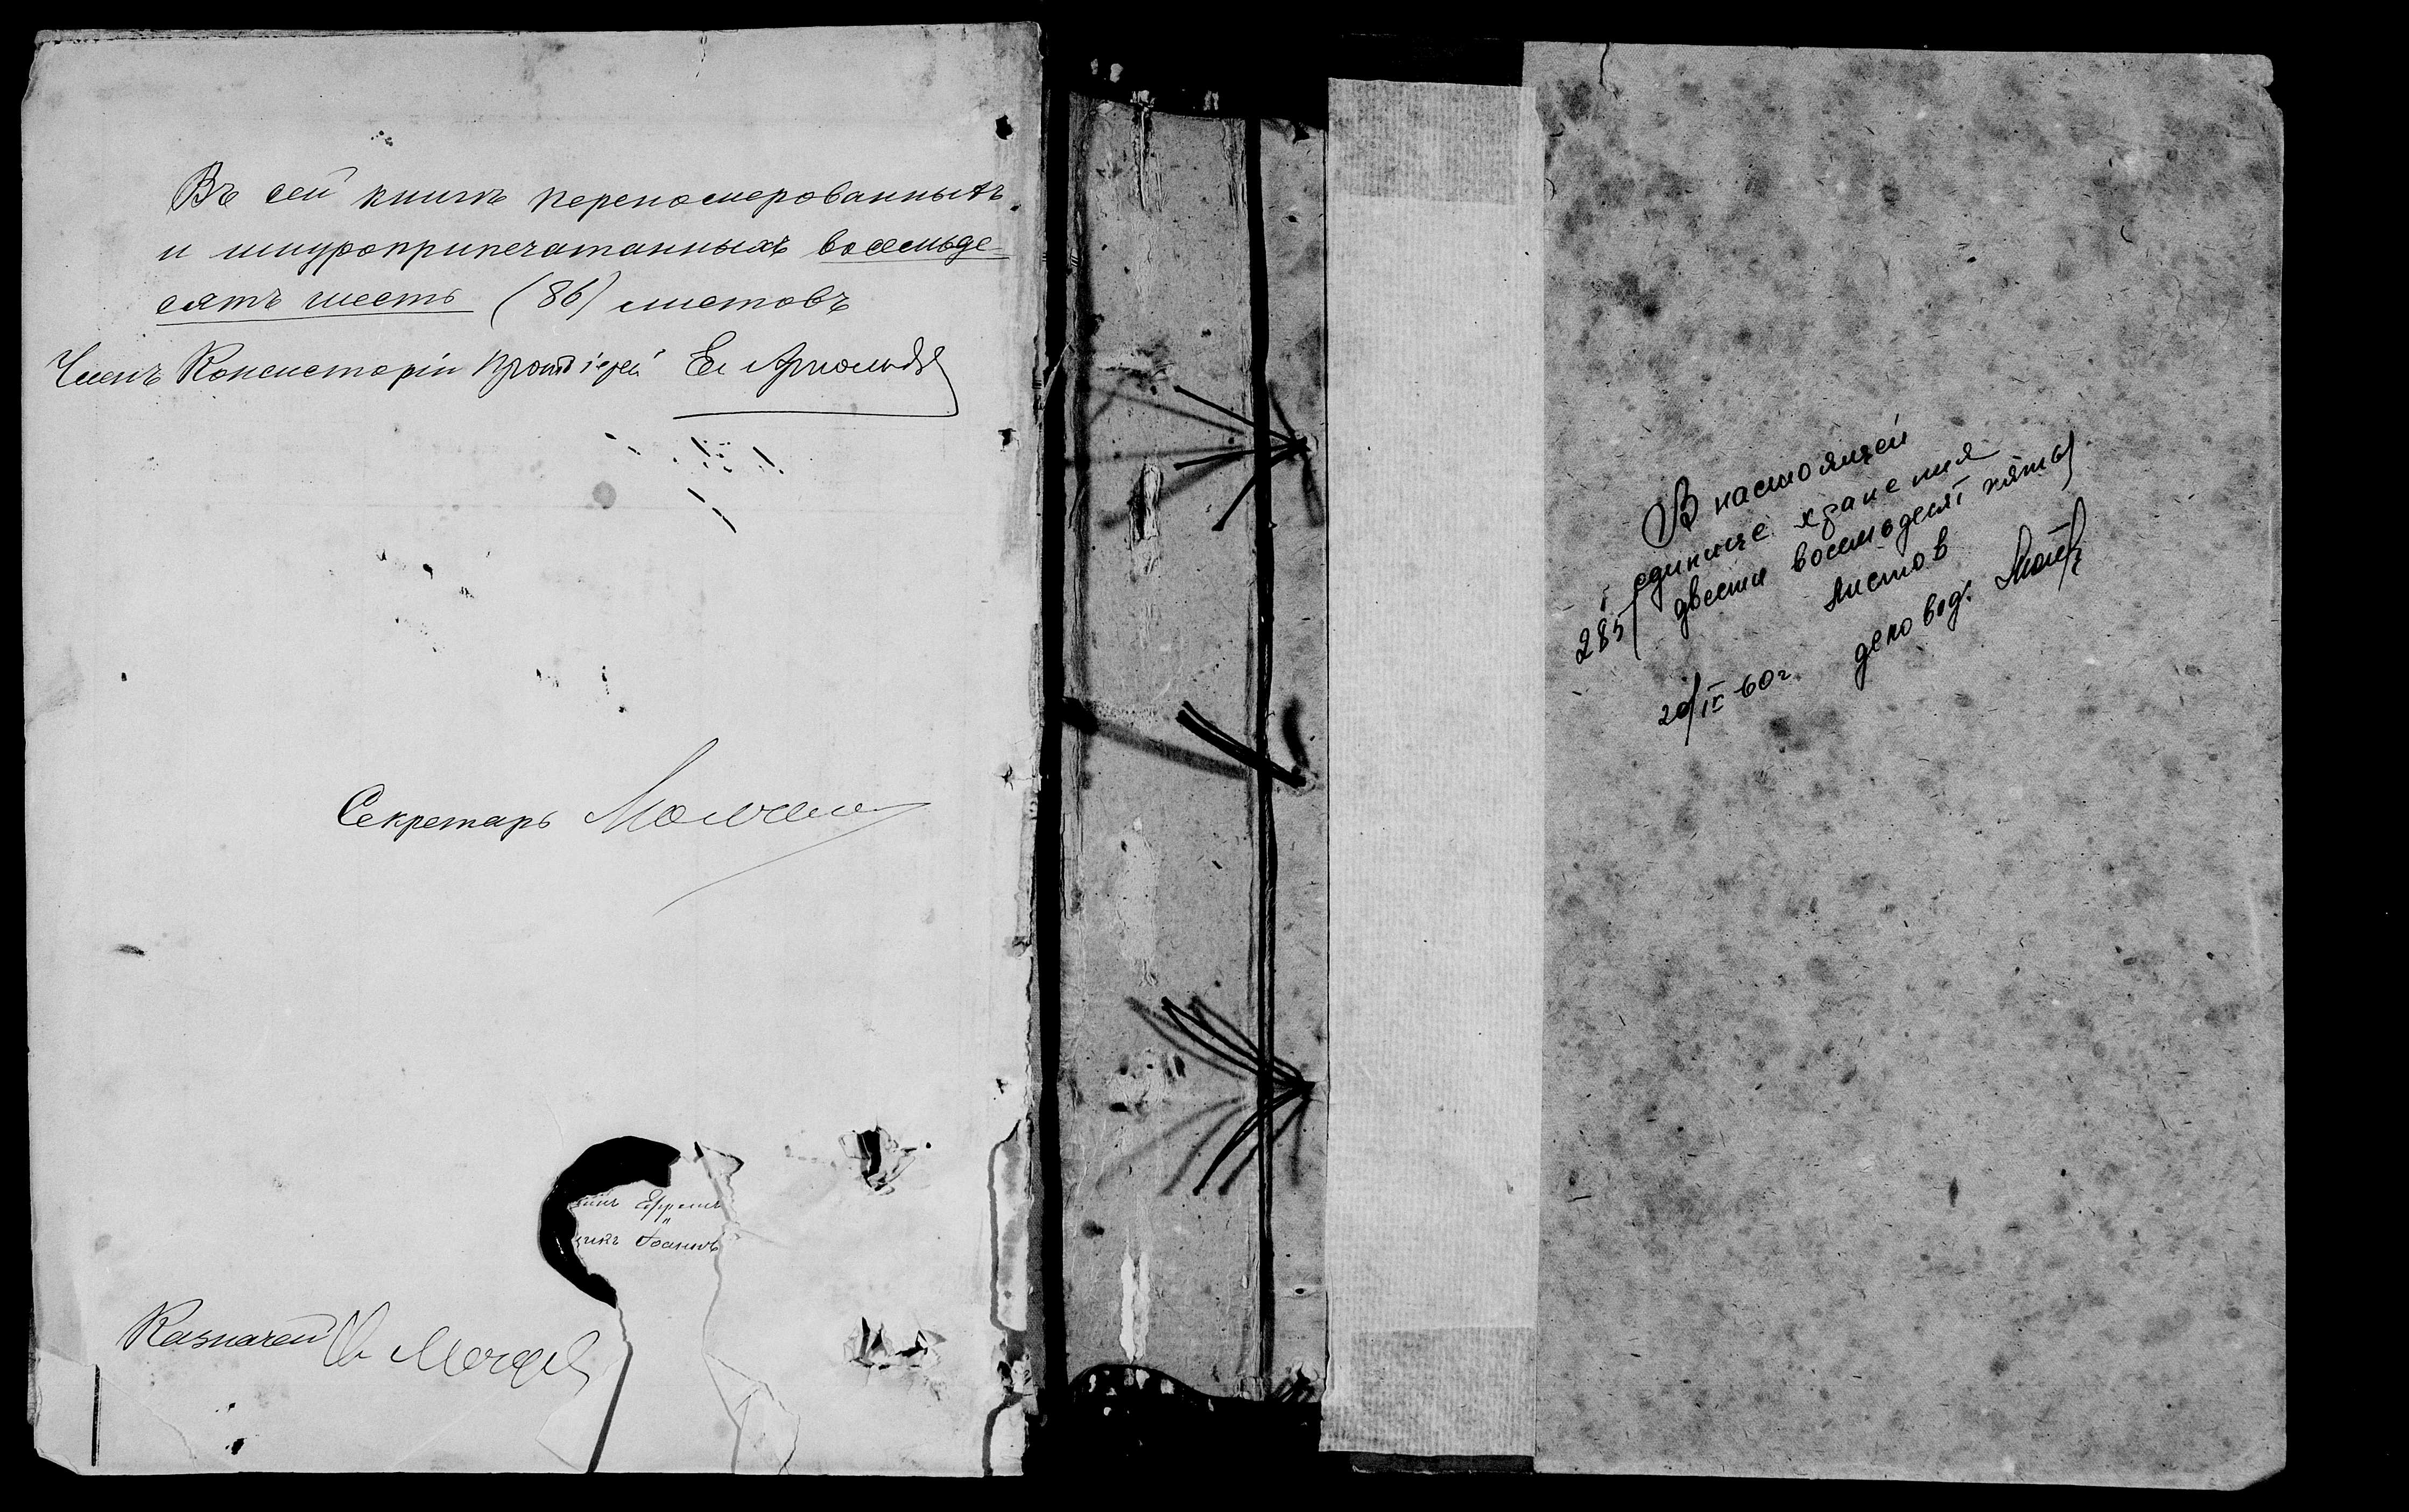 Въ сей книгѣ перепомерованныхъ
и шнуроприпечатанныхъ восемьде-
сятъ шесть (86) листовъ
Членъ Консисторіи Протоіерей
Секретарь
Ефремъ
Іоаннъ
Казначей
В настоящей
единице хранения
285/ двести восемьдесят пять/
листов
20/IX 60 г. деловод.